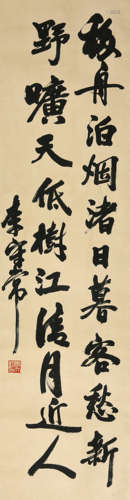 移舟泊烟渚日暮客愁新
野曠天低樹江清月近人
李寶常